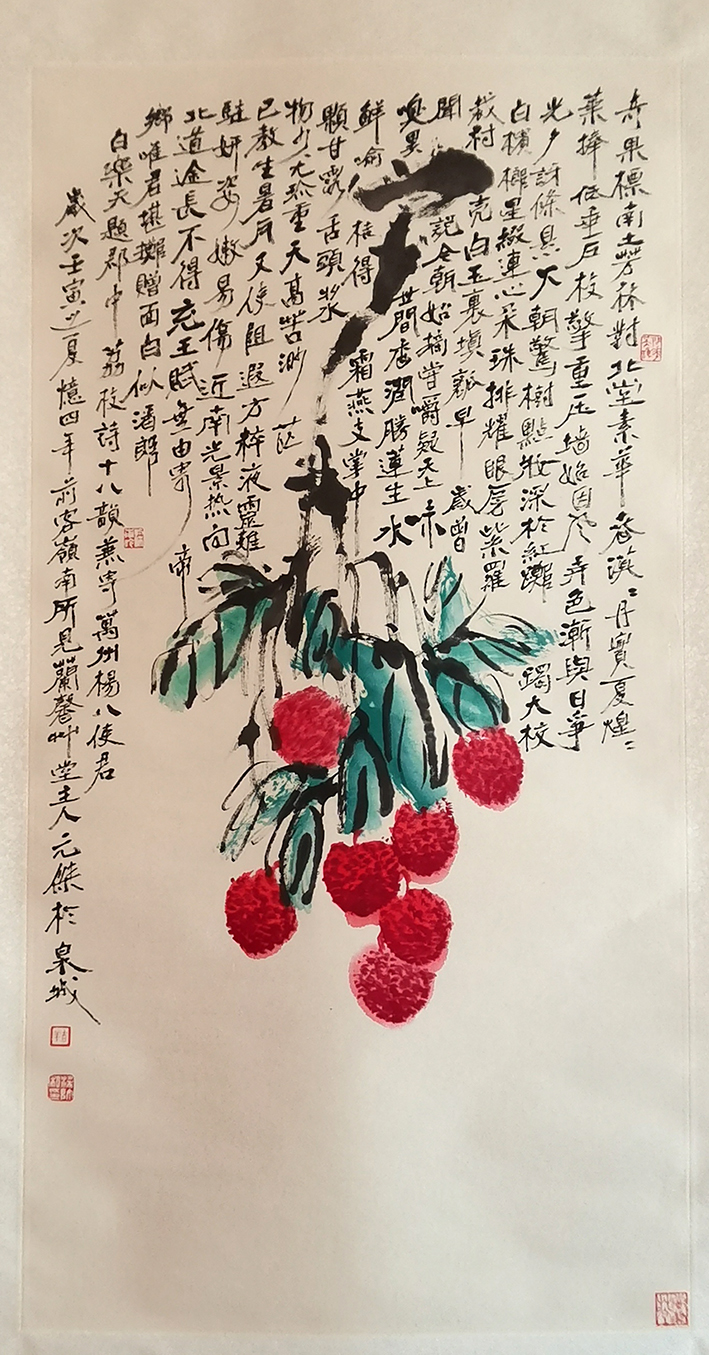 奇果標南土芳林對北堂素華春漠〻丹實夏煌〻
葉捧低垂戶枝擎重压墻始因风弄色漸與日爭
光夕訝條县火朝驚樹點妝深於紅躑躅大校
白檳榔星綴連心朵珠排耀眼房紫羅
裁村壳白玉裹填瓤早歲曾
聞說今朝始摘嘗嚼疑天上味
嗅異世間香潤勝蓮生水
鮮喻桔得霜燕支掌中
顆甘露舌頭漿
物少尤珍重天高苦渺茫
已教生暑月又使阻遐方粹液靈難
駐妍姿嫩易傷近南光景热向
北道途長不得充王賦無由寄帝
鄉唯君堪擲贈面白似潘郎
白樂天題郡中荔枝詩十八韻兼寄萬州楊八使君
歲次壬寅之夏憶四年前客嶺南所見蘭馨艸堂主人元傑於泉城